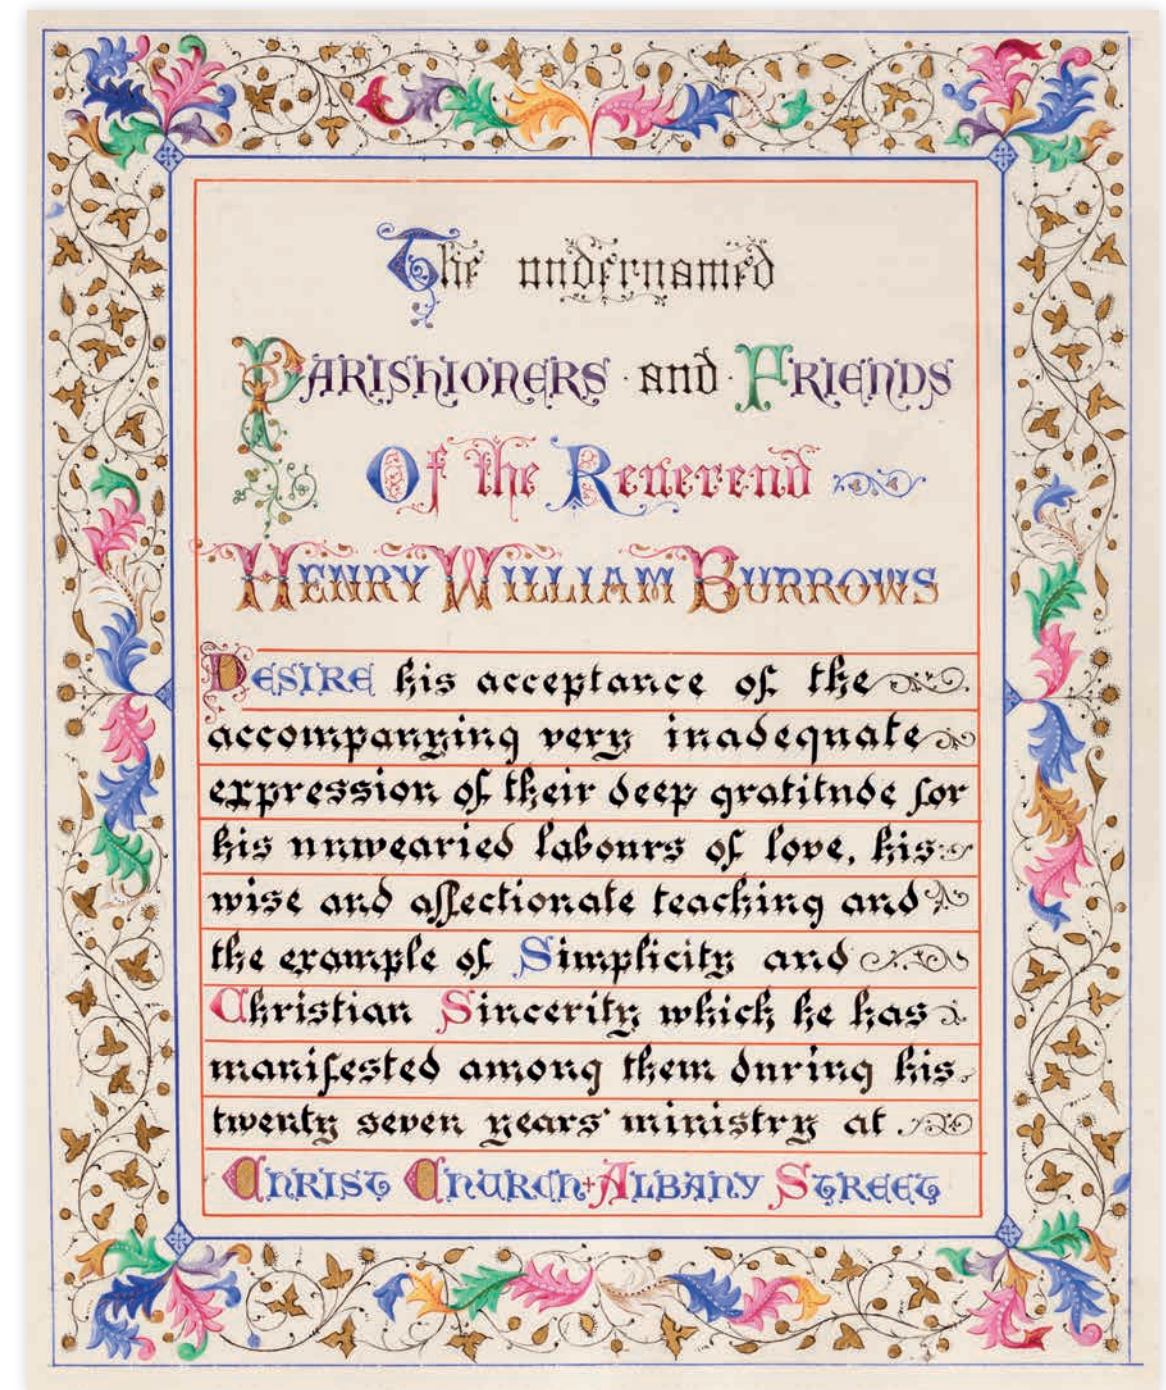 The undernamed
PARISHIONERS and FRIENDS
Of the Reverend
HENRY WILLIAM BURROWS
DESIRE his acceptance of the
accompanying very inadequate
expression of their deep gratitude for
his unwearied labours of love, his
wise and affectionate teaching and
the example of Simplicity and
Christian Sincerity which he has
manifested among them during his
twenty seven years' ministry at
CHRIST CHURCH + ALBANY STREET